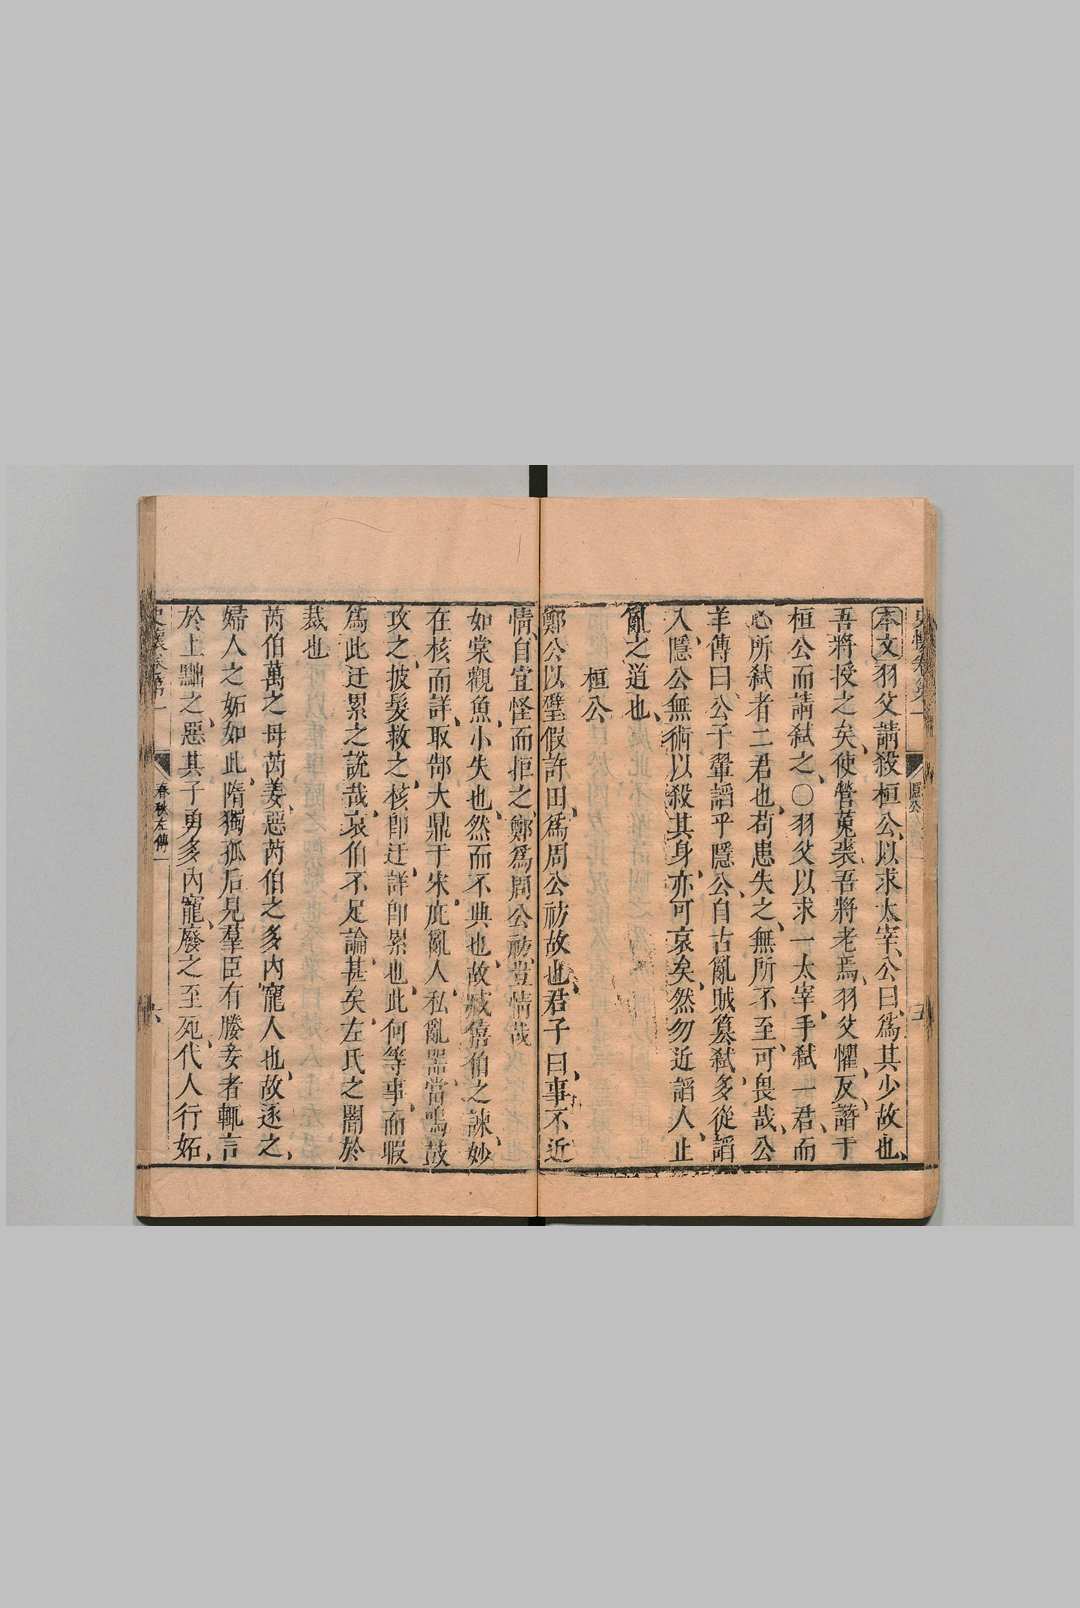 本文羽父請殺桓公、以求太宰、公曰、爲其少故也、
吾將授之矣、使營菟裘、吾將老焉、羽父懼、反譖于
桓公而請弑之、○羽父以求一太宰、手弑一君、而
心所弑者二君也、苟患失之、無所不至、可畏哉、公
羊傳曰、公子翬謟乎隱公、自古亂賊簒弑、多從謟
入、隱公無術以殺其身、亦可哀矣、然勿近謟人、止
亂之道也、
桓公
鄭公以璧假許田、爲周公祊故也、君子曰、事不近
情、自宜怪而拒之、鄭爲周公祊、豈情哉
如棠觀魚、小失也、然而不典也、故臧僖伯之諫、妙
在核而詳、取郜大鼎于宋、庇亂人、私亂器、當鳴鼓
攻之、披髮救之、核卽迂、詳卽累也、此何等事、而暇
爲此迂累之說哉、哀伯不足論、甚矣、左氏之闇於
裁也
芮伯萬之母芮姜、惡芮伯之多內寵人也、故逐之、
婦人之妬如此、隋獨孤后見羣臣有媵妾者、輒言
於上黜之、惡其子勇多內寵、廢之至死、代人行妬、
史懷卷第一
春秋左傳一
六
史懷卷第一
隱公
五